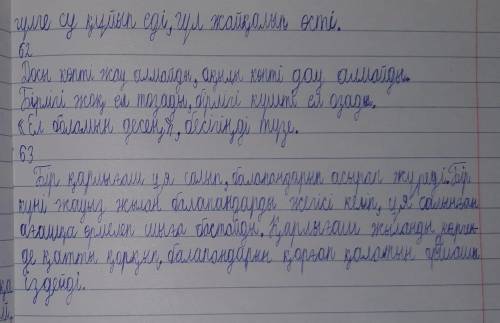 гүлге су құйып еді, гүл жайқалып өсті.
62
Досы көпті жау алмайды, ақылы көпті дау алмайды.
Бірлігі жоқ ел тозады, бірлігі күшті ел озады.
«Ел боламын десең», бесігіңді түзе.
63
Бір қарлығаш ұя салып, балапандарын асырап жүреді. Бір
күні жауыз жылан балапандарды жегісі келіп, ұя салынған
ағашқа өрмелеп шыға бастайды. Қарлығаш жыланды көрген-
де қатты қорқып, балапандарын қорғап қалатын
іздейді.